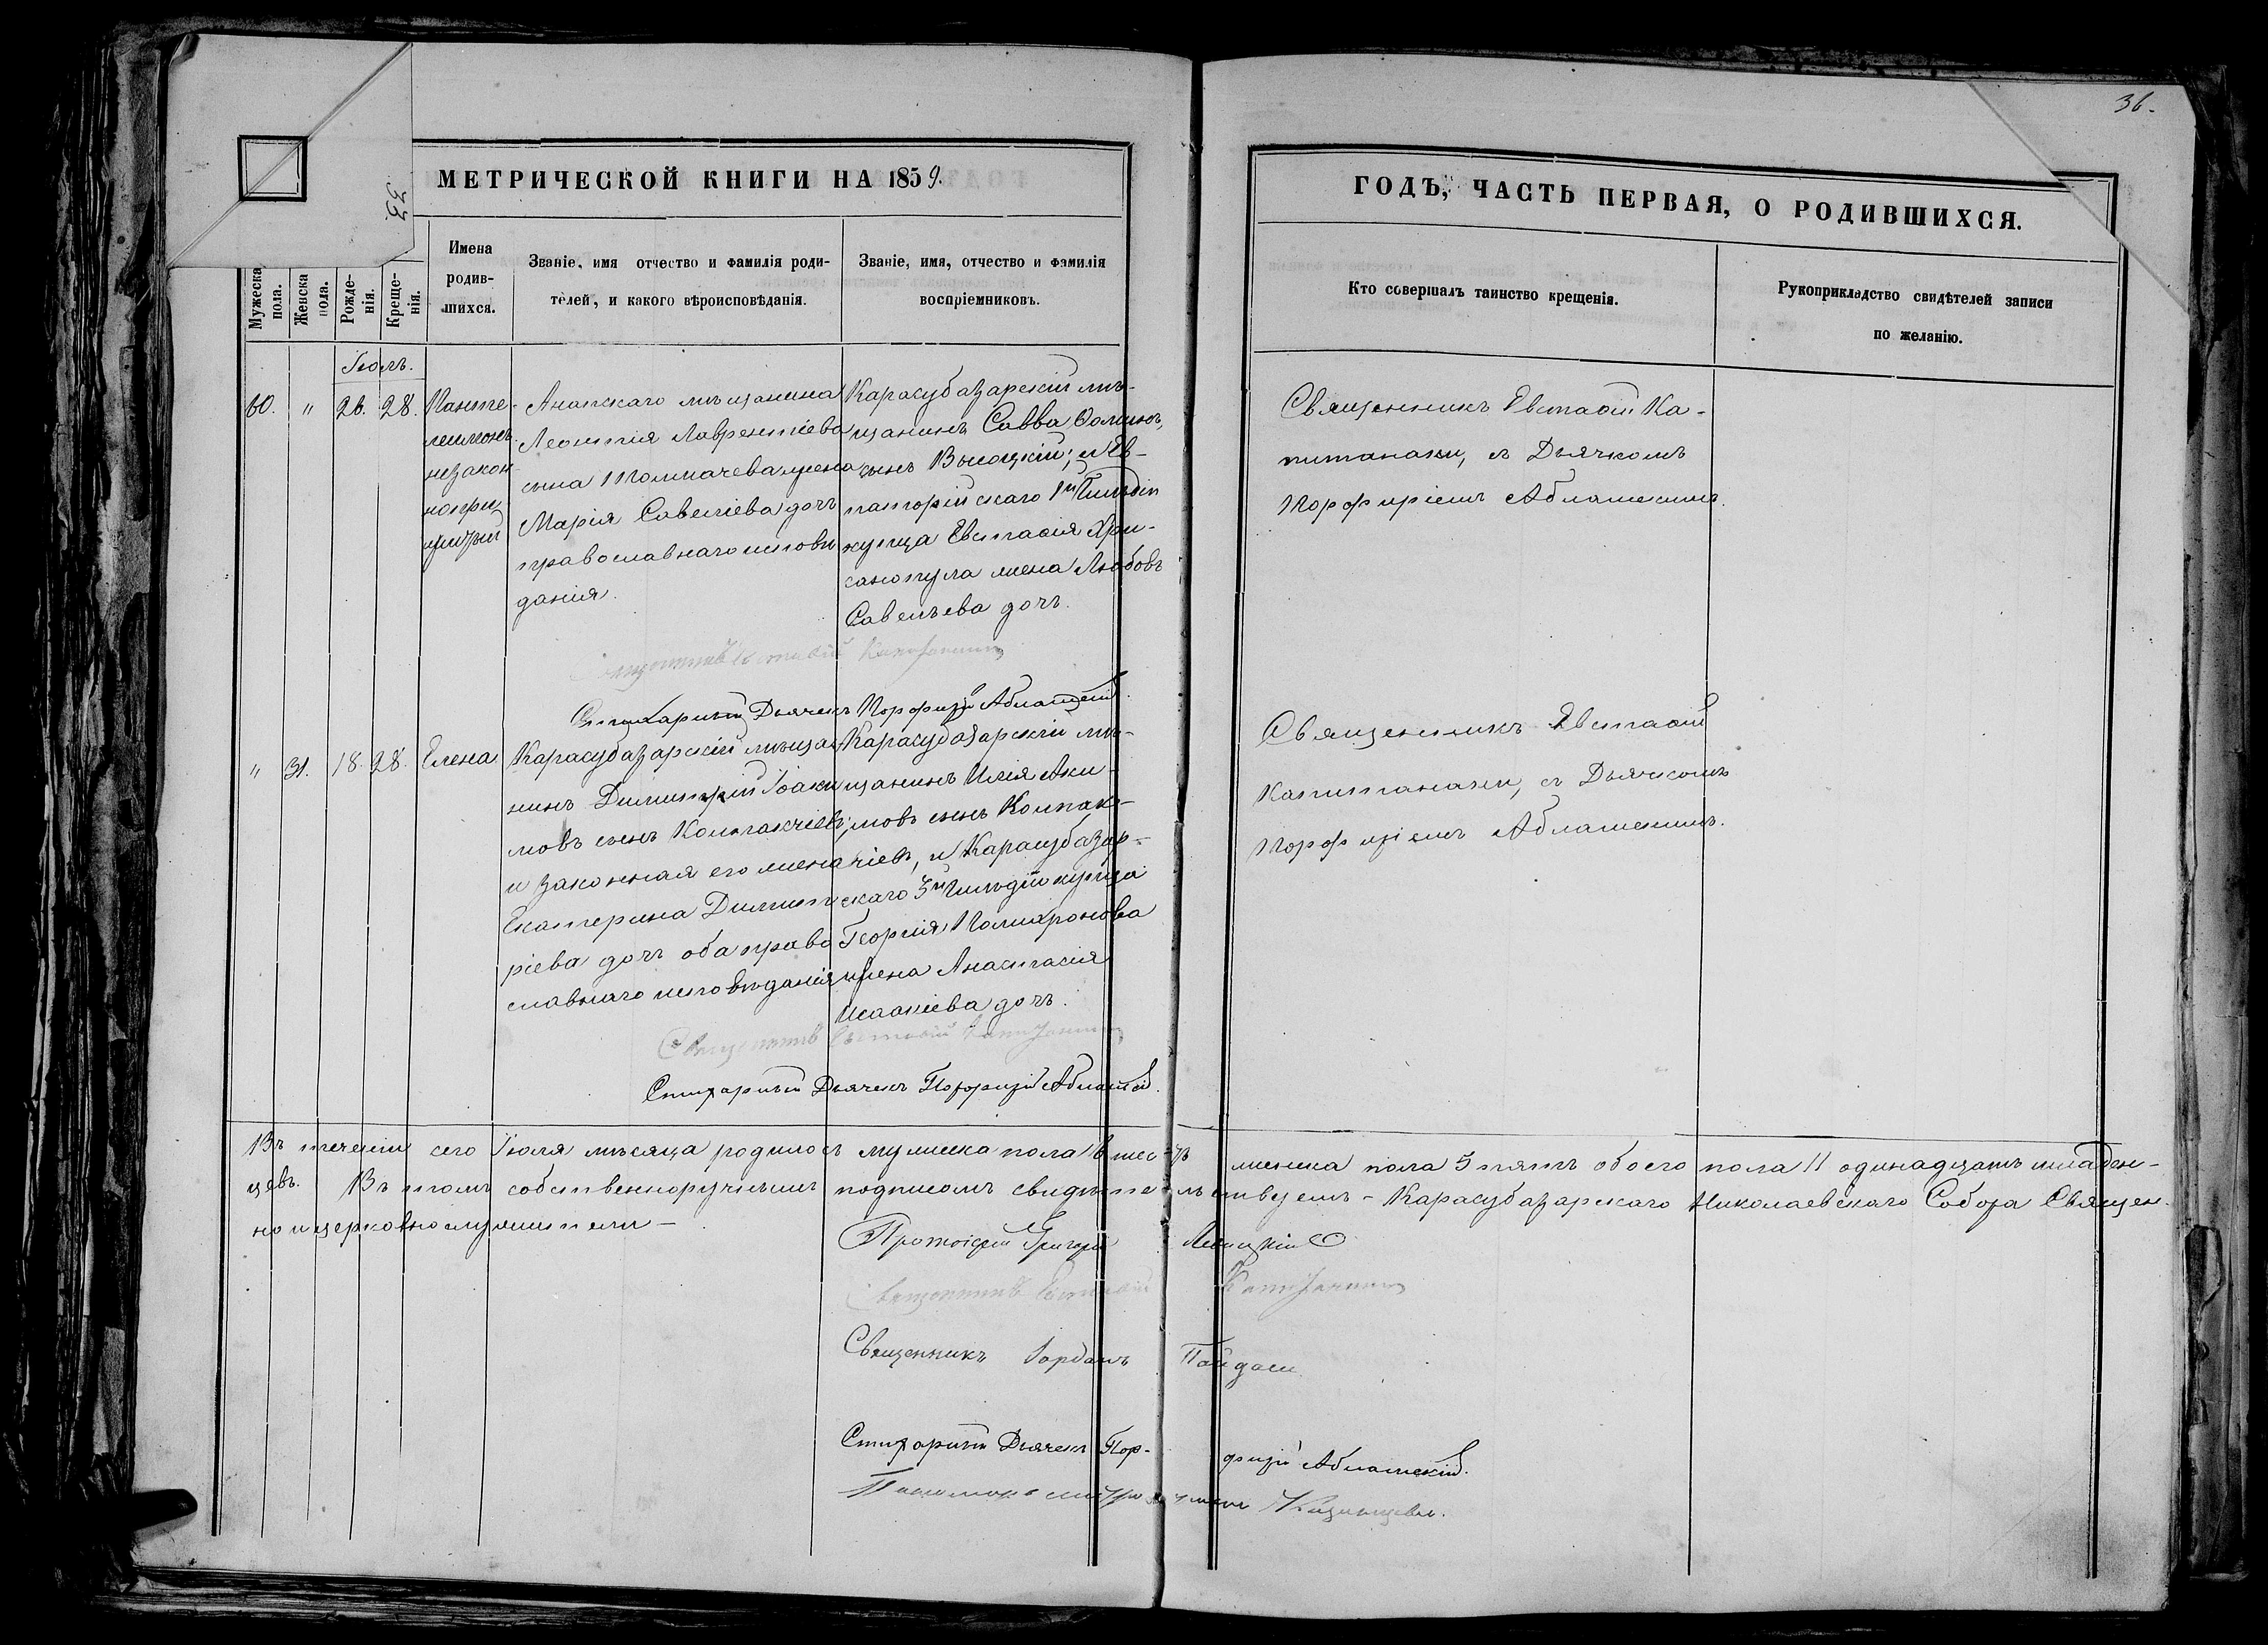 36.
33
МЕТРИЧЕСКОЙ КНИГИ НА 1859.
ГОДЪ, ЧАСТЬ ПЕРВАЯ, О РОДИВШИХСЯ.
Мужеска пола.
Женска пола.
Рожде-
нія.
Креще-
нія.
Имена
родив-
шихся.
Званіе, имя отчество и фамилія роди-
телей, и какого вѣроисповѣданія.
Званіе, имя, отчество и фамилія
воспріемниковъ.
Кто совершалъ таинство крещенія.
Рукоприкладство свидѣтелей записи
по желанію.
Іюль.
60. " 26. 28.
Панте-
леимонъ
незакон
нопри
житый
Анапскаго мѣщанина
Леонтія Лаврентіева
сына Толмачева жена
Марія Савеліева дочь
православнаго исповѣ
данія.
Карасубазарскій мѣ-
щанинъ Савва Ѳоминъ
сынъ Высоцкій; и Ев-
паторійскаго 1й Гильдіи
купца Евстафія Хри-
санопула жена Любовь
Савельева дочь.
Священникъ Евстафій Ка-
питанаки, съ Дьячкомъ
Порфиріемъ Аблажскимъ.
Стихарный Дьячекъ Порфирій Аблажскій.
" 31. 18. 28. Елена
Карасубазарскій мѣща
нинъ Димитрій Іоаки
мовъ сынъ Колпакчіевъ;
и законная его жена
Екатерина Димит
ріева дочь оба право
славнаго исповѣданія
Карасубазарскій мѣ-
щанинъ Илія Аки-
мовъ сынъ Колпак-
чіевъ, и Карасубазар-
скаго 3й Гильдіи купца
Георгія Полихронова
жена Анастасія
Исаакіева дочь.
Священникъ Евстафій
Капитанаки, съ Дьячкомъ
Порфиріемъ Аблажскимъ.
Священникъ Евстафій Капитанаки
Стихарный Дьячекъ Порфирій Аблажскій.
Въ теченіи сего Іюля мѣсяца родилось мужеска пола 6 шесть женска пола 5 пять обоего пола 11 одинадцать младен-
цевъ. Въ томъ собственноручнымъ подписомъ свидѣтельствуемъ - Карасубазарскаго Николаевскаго Собора Священ-
но и церковнослужители -
Протоіерей Григорій
Священникъ Евстафій Капитанаки
Священникъ Іорданъ
Стихарный Дьячекъ Порфирій Аблажскій.